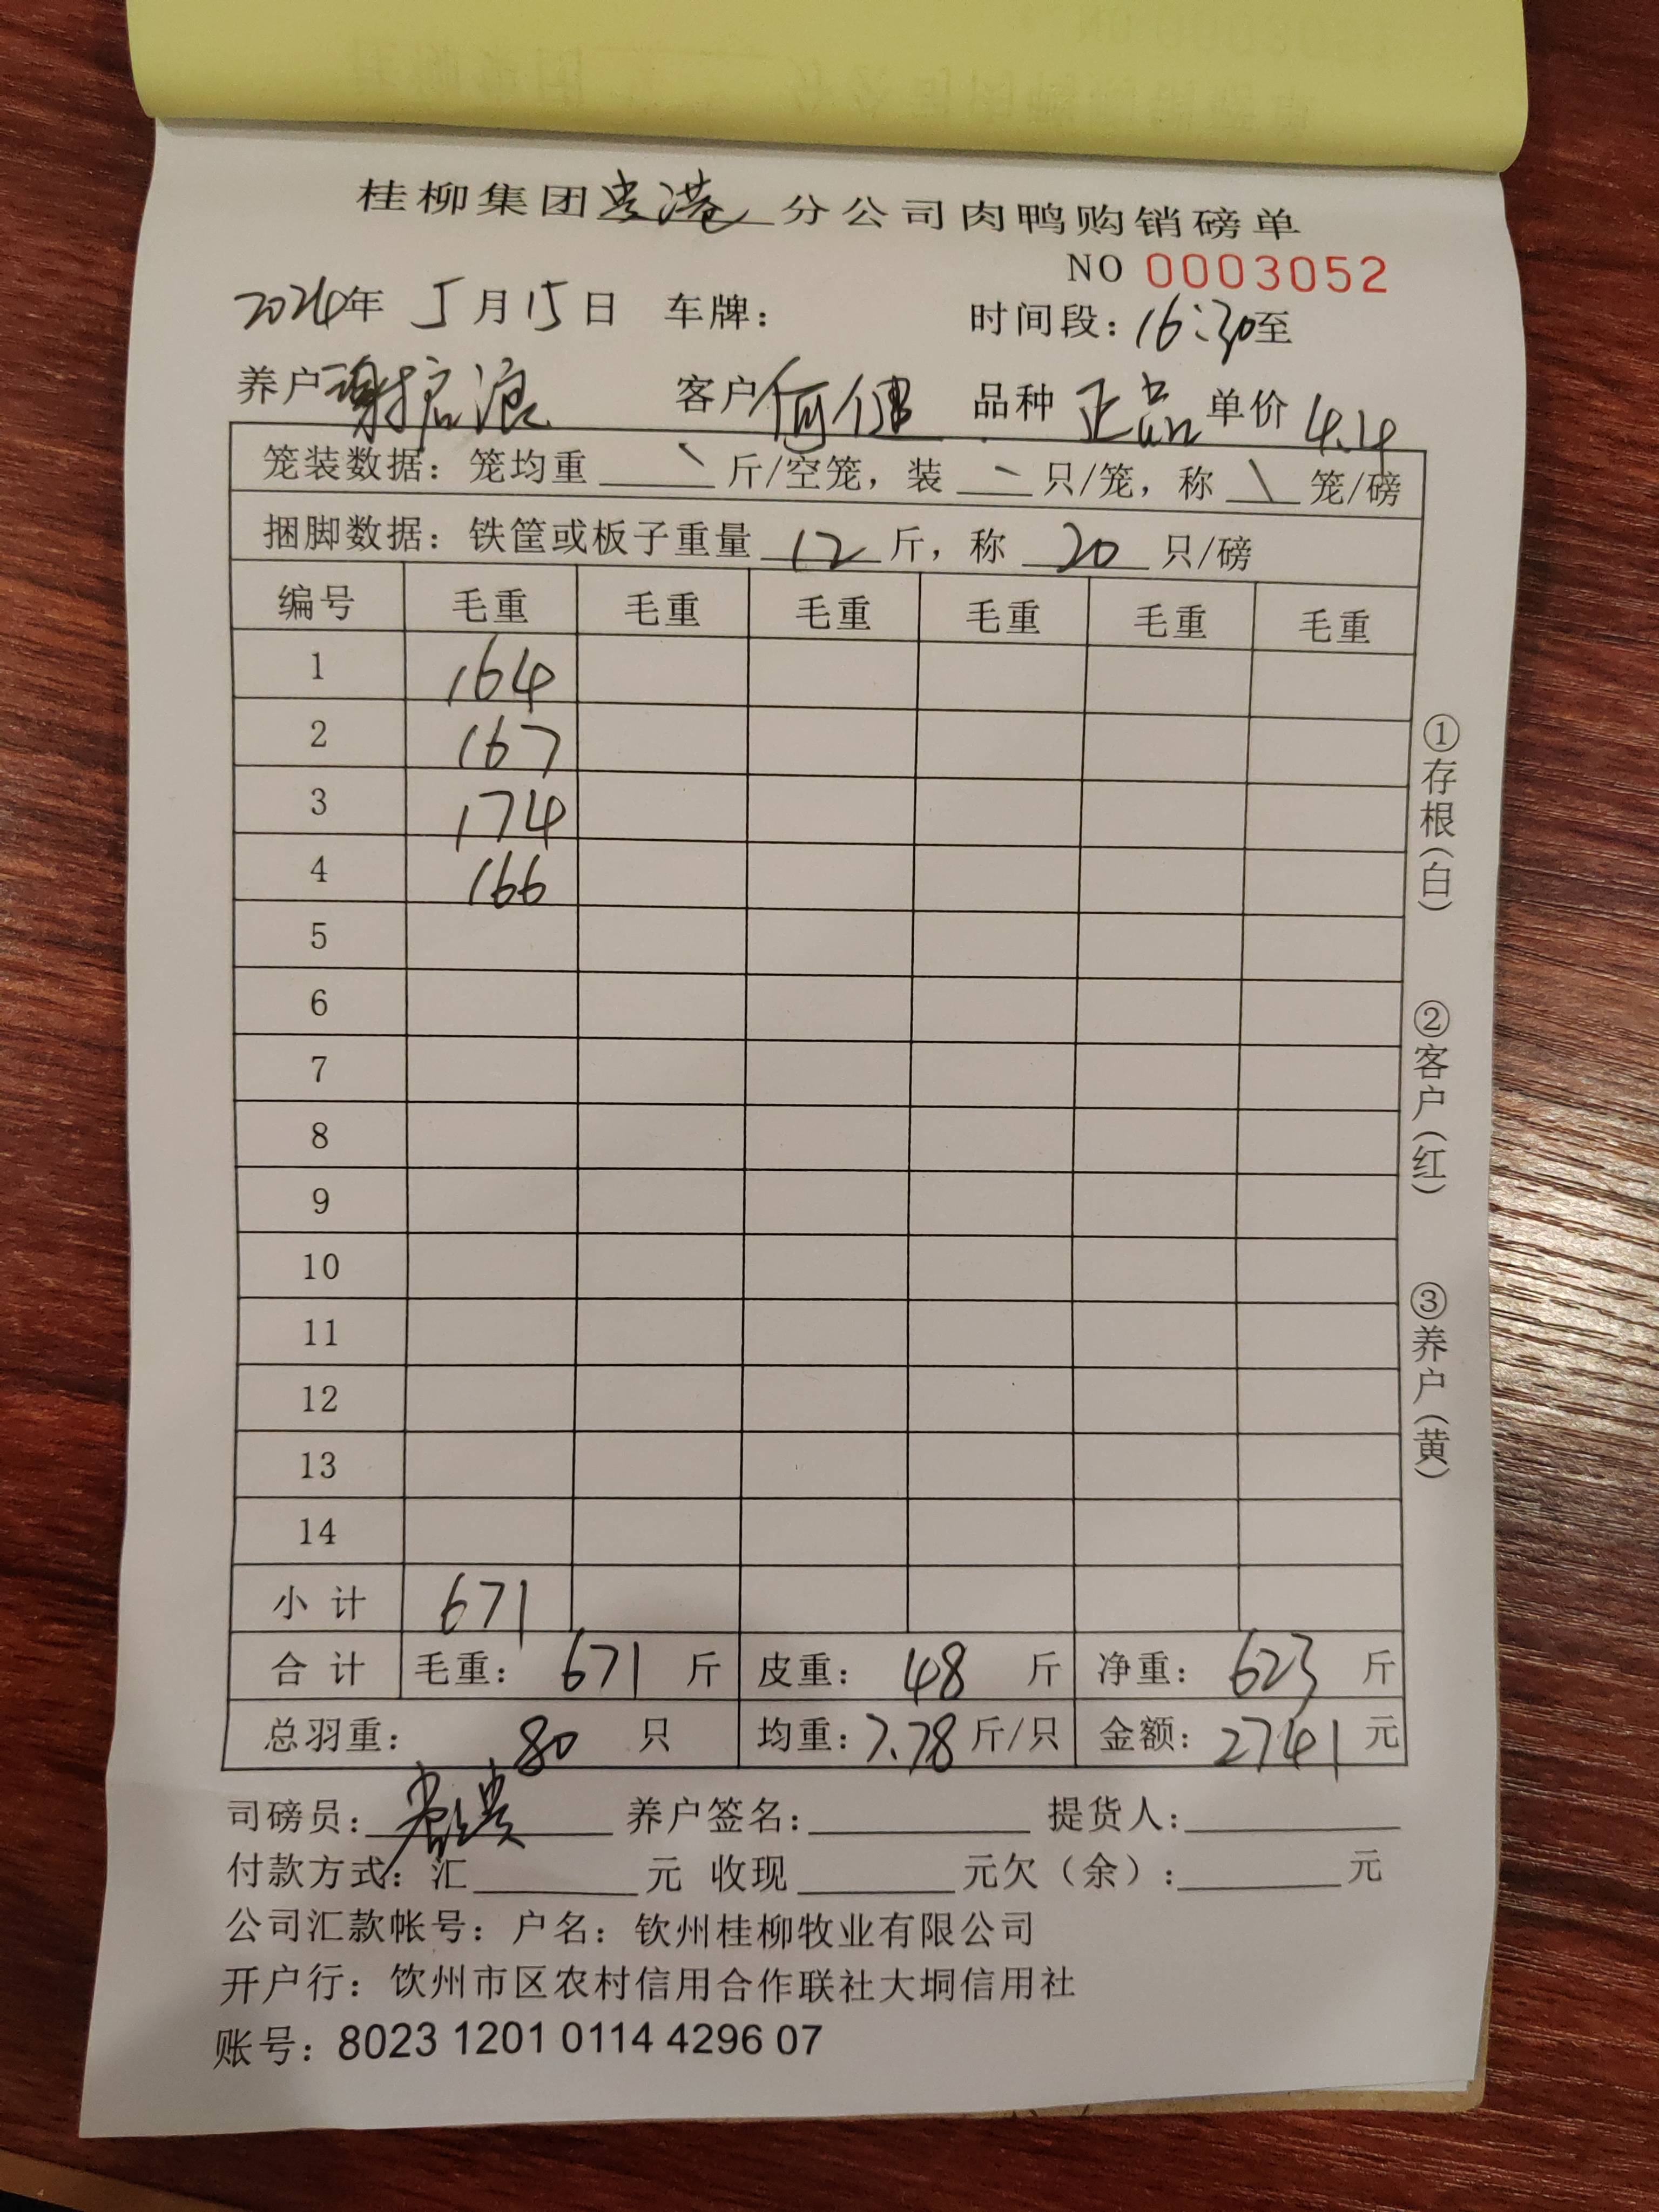 桂柳集团贵港分公司肉鸭购销磅单
NO 0003052
2024年 5月15日 车牌： 时间段：16:30至
养户谢启浪 客户何健 品种 正品 单价 4.4
笼装数据：笼均重 \ 斤/空笼，装 \ 只/笼，称 \ 笼/磅
捆脚数据：铁筐或板子重量 12 斤，称 20 只/磅
编号 毛重 毛重 毛重 毛重 毛重 毛重
1 164
2 167
3 174
4 166
5
6
7
8
9
10
11
12
13
14
小计 671
合计 毛重：671 斤 皮重：48 斤 净重：623 斤
总羽重：80 只 均重：7.78斤/只 金额：2741 元
司磅员： 养户签名： 提货人：
付款方式：汇 元 收现 元欠（余）： 元
公司汇款帐号：户名：钦州桂柳牧业有限公司
开户行：饮州市区农村信用合作联社大垌信用社
账号：8023 1201 0114 4296 07
①存根（白）
②客户（红）
③养户（黄）